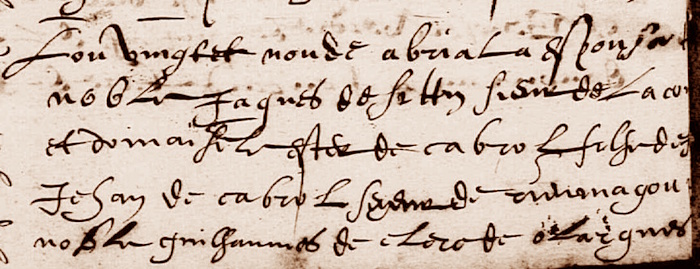 Lou vingtet nou de abria La espousa
noble Jaques de sieur de La co
et domaiselle ester de cabrol filhe de
Jehan de cabrol sieur de riumagou
noble guilhaumes de clerc de olargues